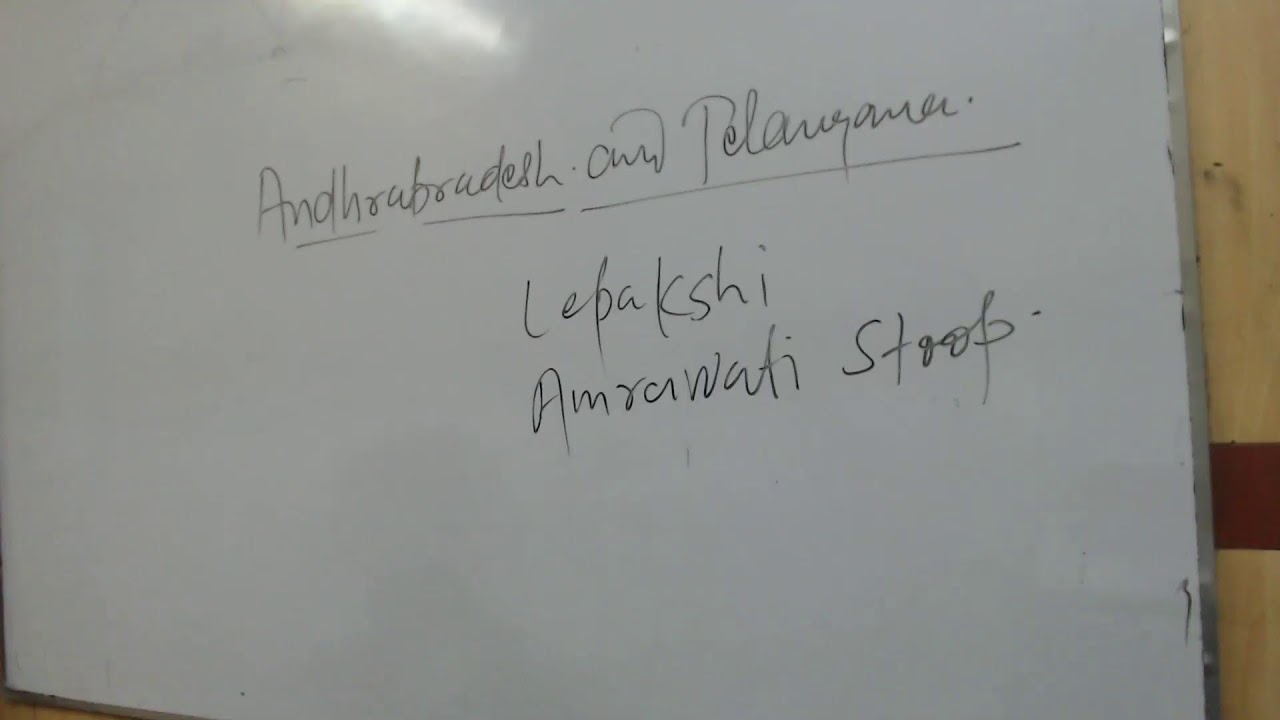 Andhrapradesh. and Telangana.
Lepakshi
Amrawati Stoop.